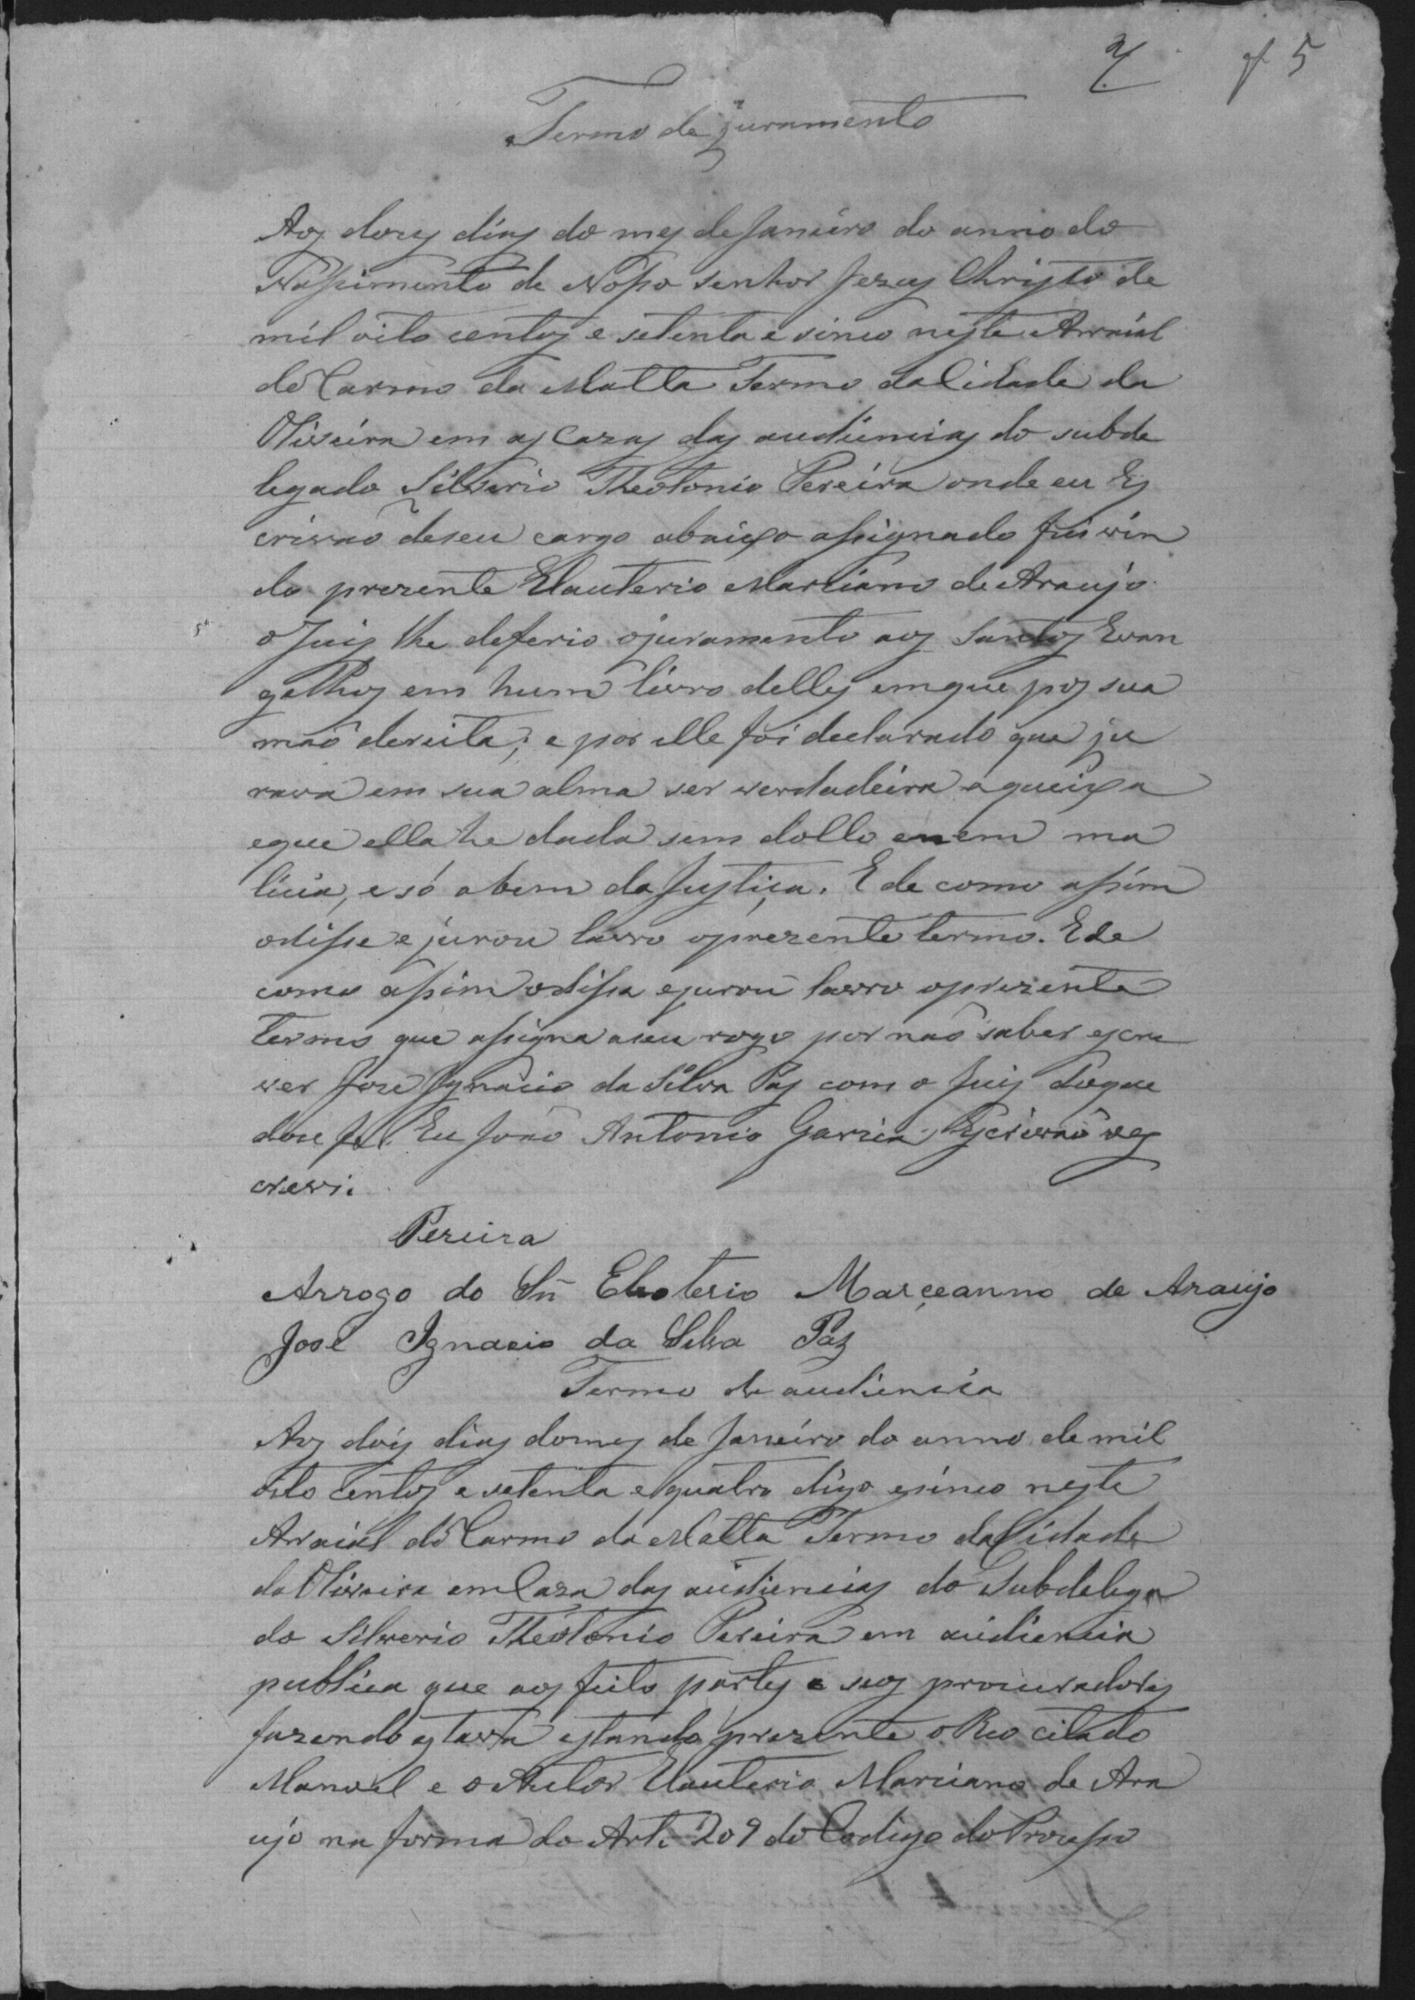 f 5
Termo de juramento
Aos doiz dias do mes de Janeiro do anno do
Nassimento de Nosso senhor Jezus Christo de
mil oito centos e setenta e sinco neste Arraial
do Carmo da Matta Termo da Cidade da
Oliveira em as Cazas das audiencias do subde
legado Silverio Theotonio Pereira onde eu Es
crivão de seu cargo abaixo assignado fui vin
do prezente Elauterio Marciano de Araujo
o Juis lhe deferio o juramento aos Santos Evan
gelhos em hum livro delles em que pos sua
mão dereita; e por elle foi declarado que ju
rava em sua alma ser verdadeira a queixa
e que ella he dada sem dollo e nem ma
licia, e só a bem da Justiça. E de como assim
o disse e jurou lavro o prezente termo. E de
como assim o dissa e jurou lavro o prezente
termo que assigna a seu rogo por não saber escre
ver Joze Ignacio da Silva Pas com o Juis do que
dou fé. Eu João Antonio Garcia Escrivão o es
crevi.
Pereira
Arrogo do Sñ Eloterio Marçeanno de Araujo
José Ignacio da Silva Paz
Termo de audiencia
Aos dois dias do mes de Janeiro do anno de mil
oito centos e setenta e quatro digo e sinco neste
Arraial do Carmo da Matta Termo da Cidade
da Oliveira em Caza das audiencias do Subdelega
do Silverio Theotonio Pereira em audiencia
publica que aos feito partes e seos procuradores
fazendo estava estando prezente o Reo citado
Manoel e o Autor Elauterio Marciano de Ara
ujo na forma do Art. 209 do Codigo do Prosesso